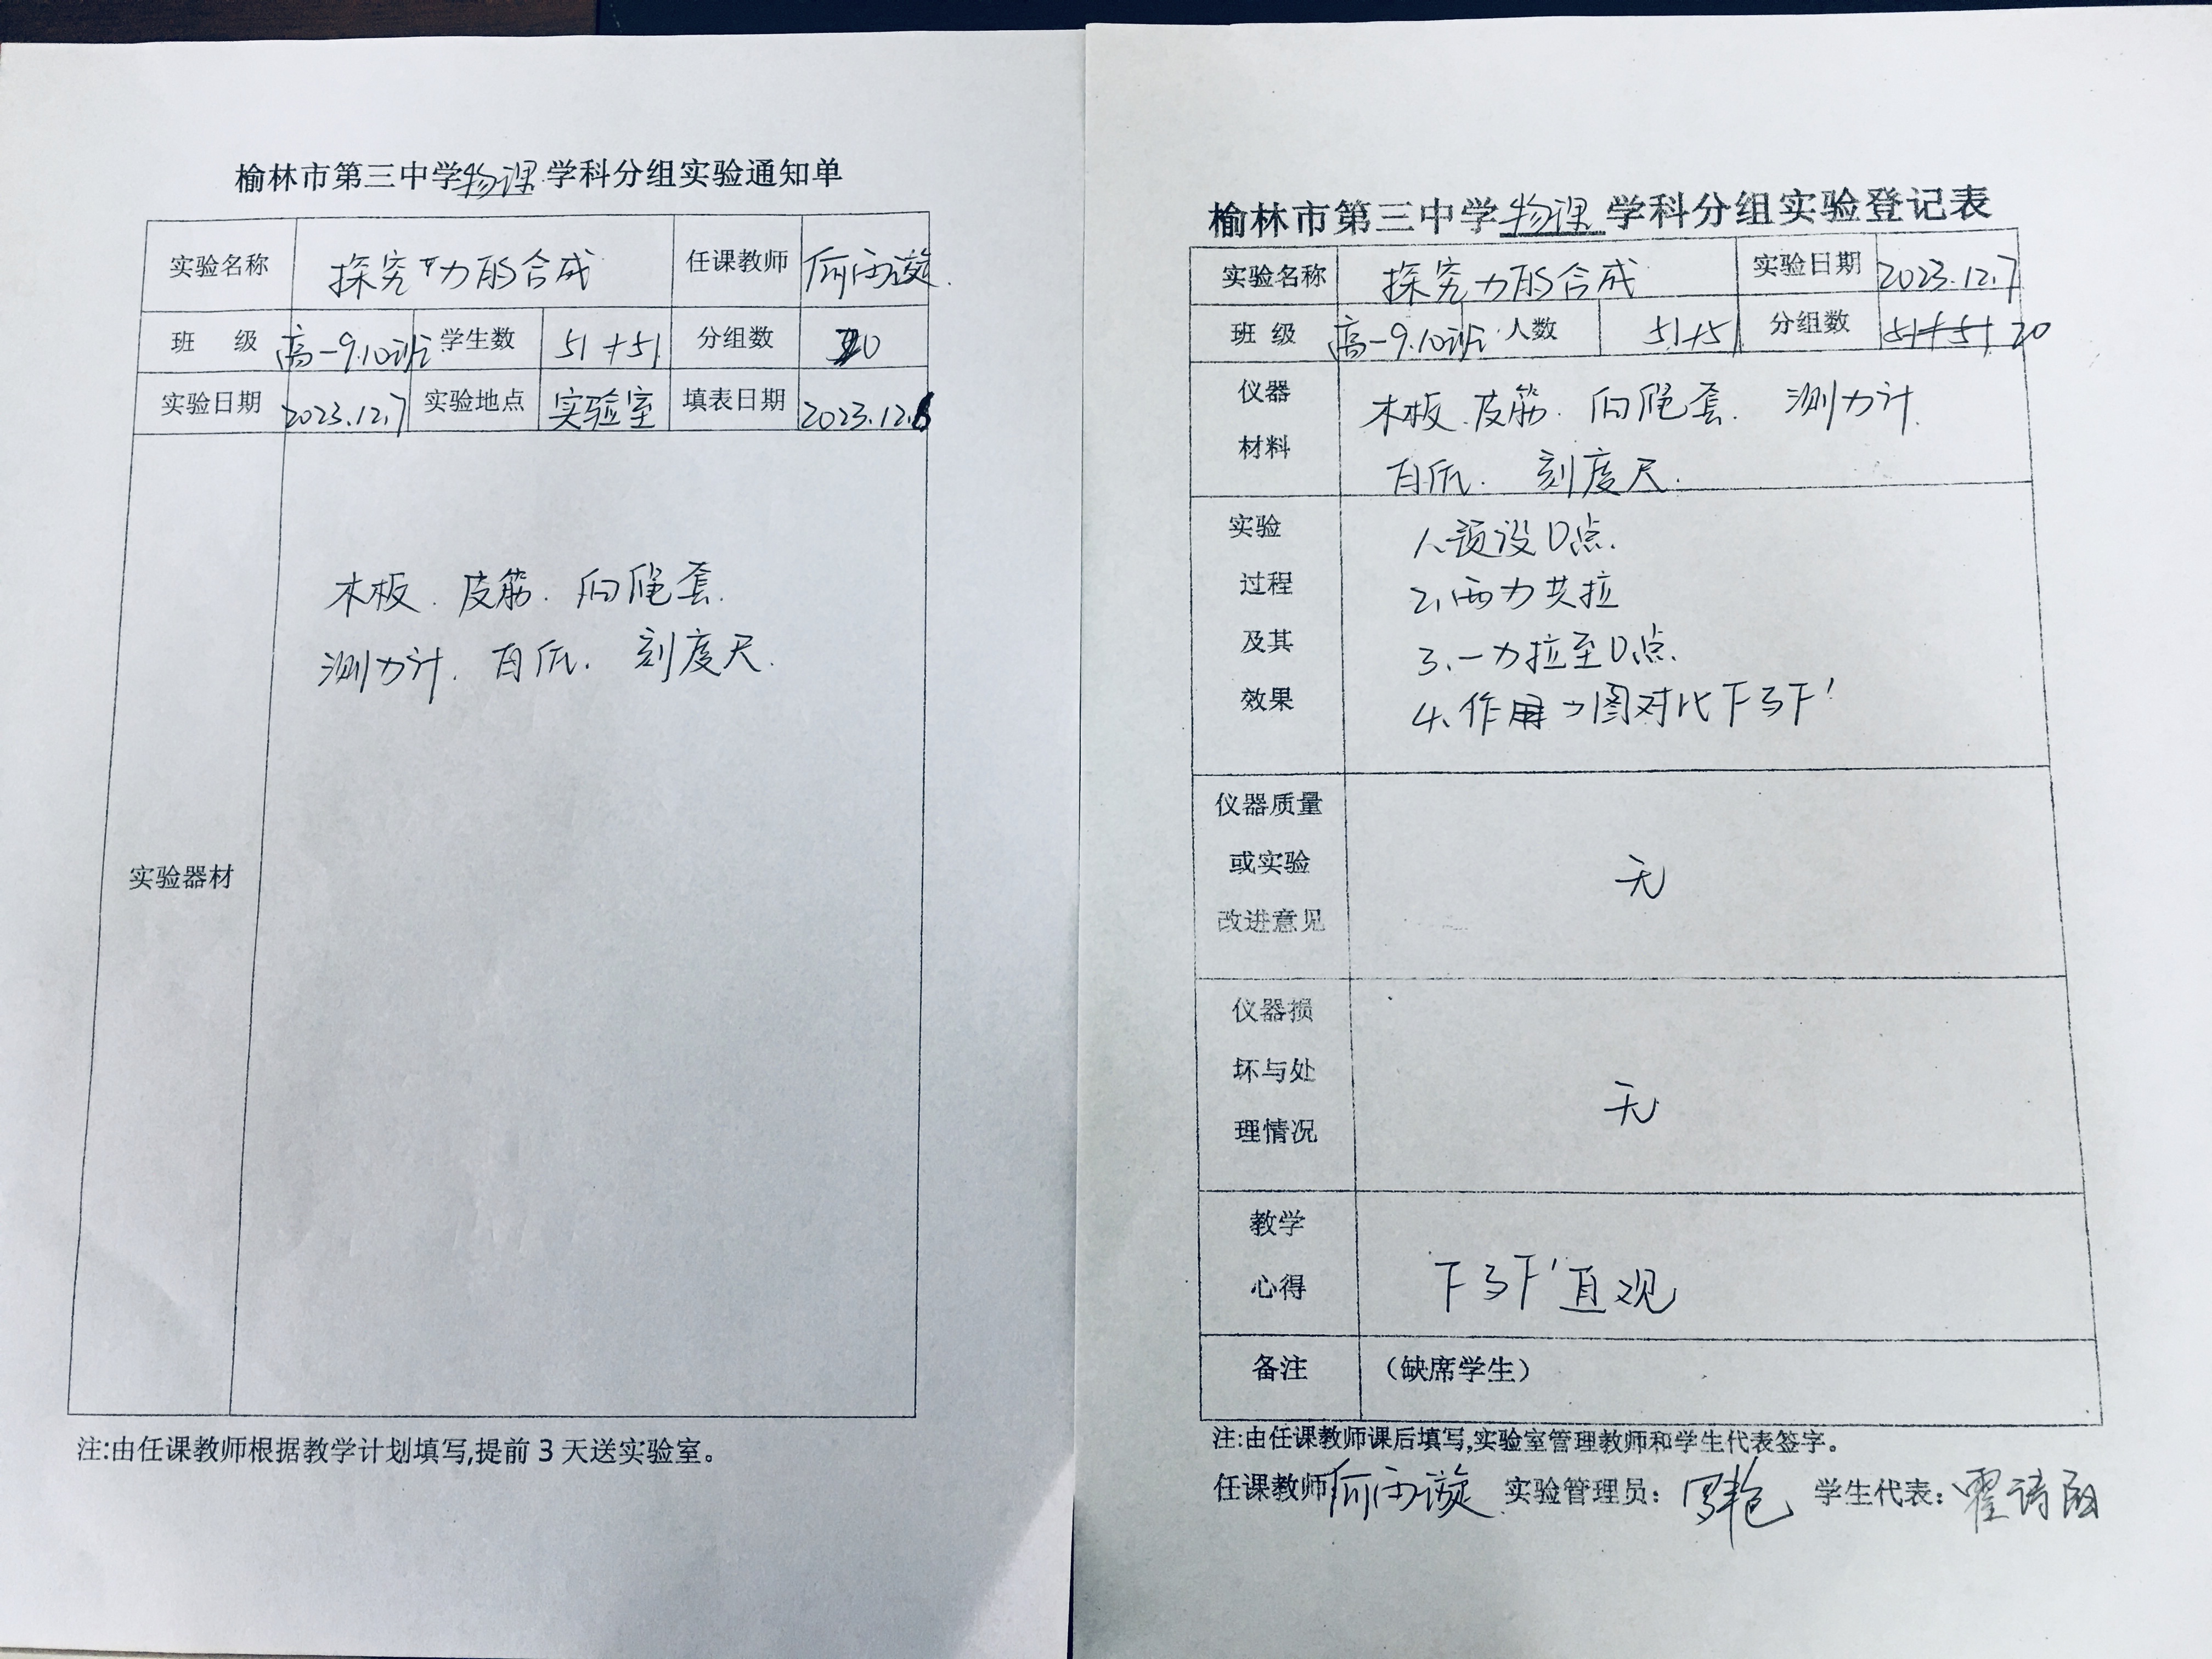 榆林市第三中学物理学科分组实验通知单
实验名称 探究力的合成 任课教师
班 级 高一9.10班 学生数 51+51 分组数 20
实验日期 2023.12.7 实验地点 实验室 填表日期 2023.12.6
实验器材
木板.皮筋.细绳套.
测力计.白纸.刻度尺.
注:由任课教师根据教学计划填写,提前 3 天送实验室。
榆林市第三中学物理学科分组实验登记表
实验名称 探究力的合成 实验日期 2023.12.7
班 级 高一9.10班 人数 51+51 分组数 51+51 20
仪器材料
木板.皮筋.细绳套.测力计.
白纸.刻度尺.
实验过程及其效果
1、预设O点.
2、两力共拉
3、一力拉至O点.
4、作用力图对比F与F'
仪器质量或实验改进意见 无
仪器损坏与处理情况 无
教学心得 F与F'直观
备注 （缺席学生）
注:由任课教师课后填写,实验室管理教师和学生代表签字。
任课教师 实验管理员： 学生代表：霍诗